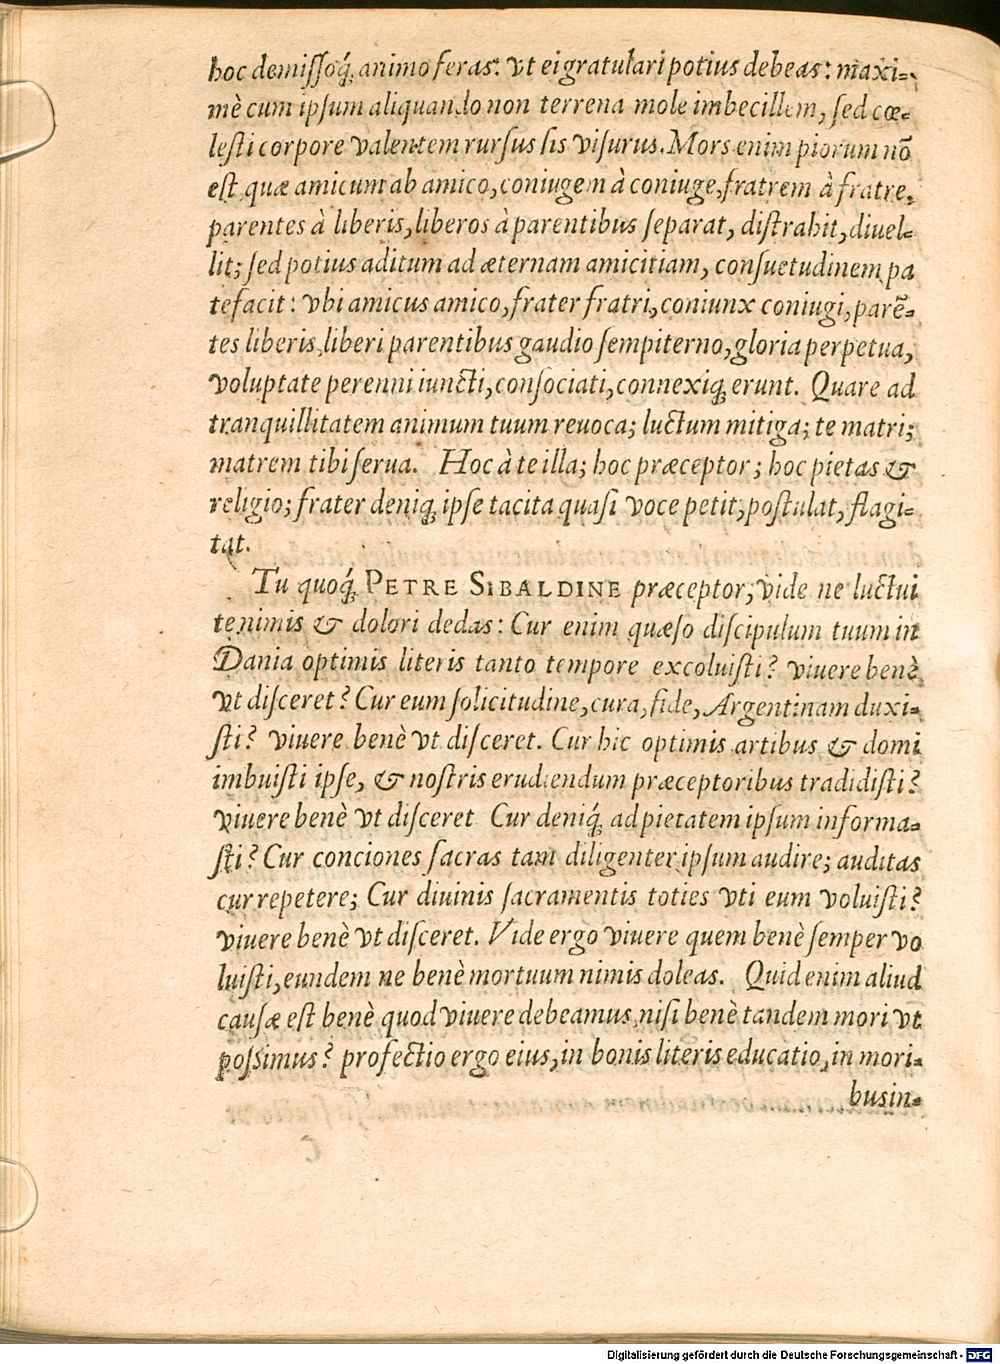 hoc demiſſoq́ꝫ animo feras: vt ei gratulari potius debeas: maxi-
mè cum ipſum aliquando non terrena mole imbecillem, ſed cœ-
leſti corpore valentem rurſus ſis viſurus. Mors enim piorum nō
eſt quæ amicum ab amico, coniugem à coniuge, fratrem à fratre,
parentes à liberis, liberos à parentibus ſeparat, diſtrahit, diuel-
lit; ſed potius aditum ad æternam amicitiam, conſuetudinem pa
tefacit: vbi amicus amico, frater fratri, coniunx coniugi, parē-
tes liberis, liberi parentibus gaudio ſempiterno, gloria perpetua,
voluptate perenni iuncti, conſociati, connexiqꝫ erunt. Quare ad
tranquillitatem animum tuum reuoca; luctum mitiga; te matri;
matrem tibi ſerua. Hoc à te illa; hoc præceptor; hoc pietas &
religio; frater deniqꝫ ipſe tacita quaſi voce petit, poſtulat, flagi-
tat.
Tu quoq́ꝫ PETRE SIBALDINE præceptor, vide ne luctui
te nimis & dolori dedas: Cur enim quæſo diſcipulum tuum in
Dania optimis literis tanto tempore excoluiſti? viuere benè
vt diſceret? Cur eum ſolicitudine, cura, fide, Argentinam duxi-
ſti? viuere benè vt diſceret. Cur hic optimis artibus & domi
imbuiſti ipſe, & noſtris erudiendum præceptoribus tradidiſti?
viuere benè vt diſceret Cur deniq́ꝫ ad pietatem ipſum informa-
ſti? Cur conciones ſacras tam diligenter ipſum audire; auditas
cur repetere; Cur diuinis ſacramentis toties vti eum voluiſti?
viuere benè vt diſceret. Vide ergo viuere quem benè ſemper vo
luiſti, eundem ne benè mortuum nimis doleas. Quid enim aliud
cauſæ eſt benè quod viuere debeamus, niſi benè tandem mori vt
poſsimus? profectio ergo eius, in bonis literis educatio, in mori-
busin-
Digitalisierung gefördert durch die Deutsche Forschungsgemeinschaft - DFG